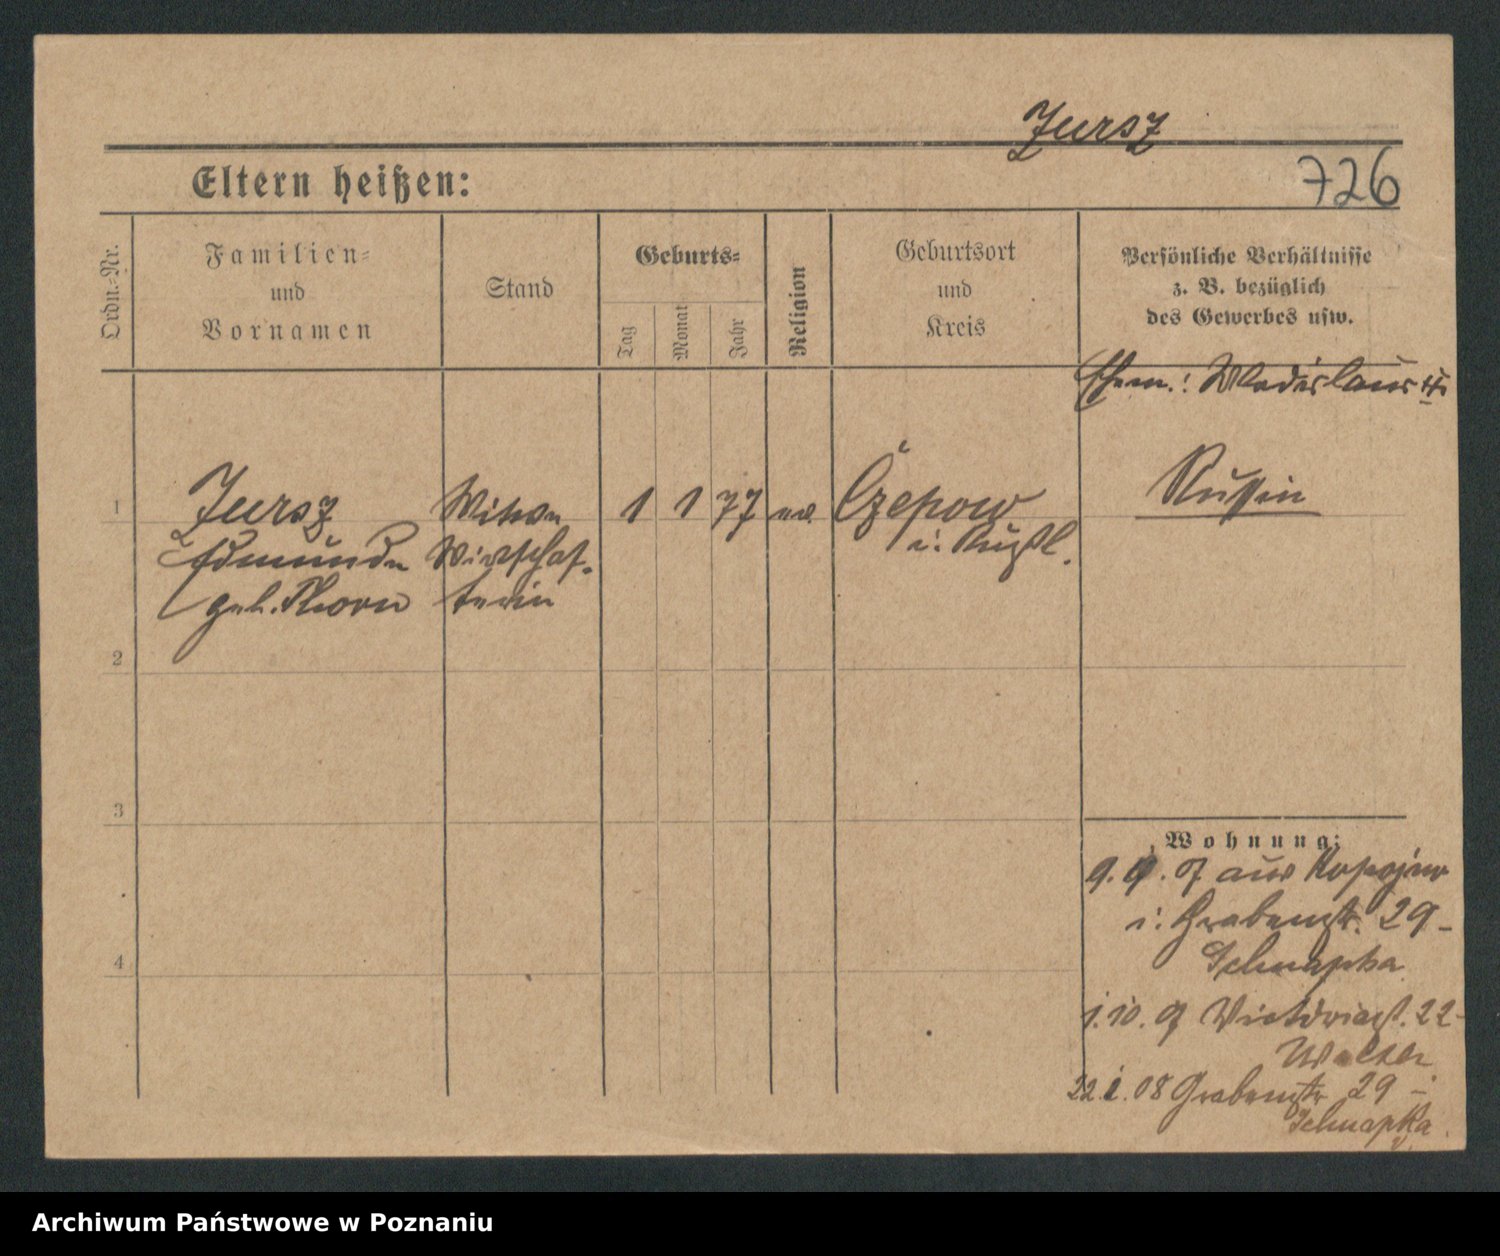 Jursz
Eltern heißen:
726
Ordn.-Nr.
Familien-
und
Vornamen
Stand
Geburts-
Tag
Monat
Jahr
Religion
Geburtsort
und
Kreis
Persönliche Verhältnisse
z. B. bezüglich
des Gewerbes usw.
Ehem.: Wladislaus
1
Jursz
geb. Thorn
Witwe
Wirtschaf-
terin
1 1 77
ev.
Czepow
i. Rußl.
Russin
2
3
4
Wohnung:
9. 9. 07 aus
i. Grabenstr. 29 -
Schnapka
1. 10. 07 Viktoriast. 22 -
22. 1. 08 Grabenstr 29 -
Schnapka.
Archiwum Państwowe w Poznaniu